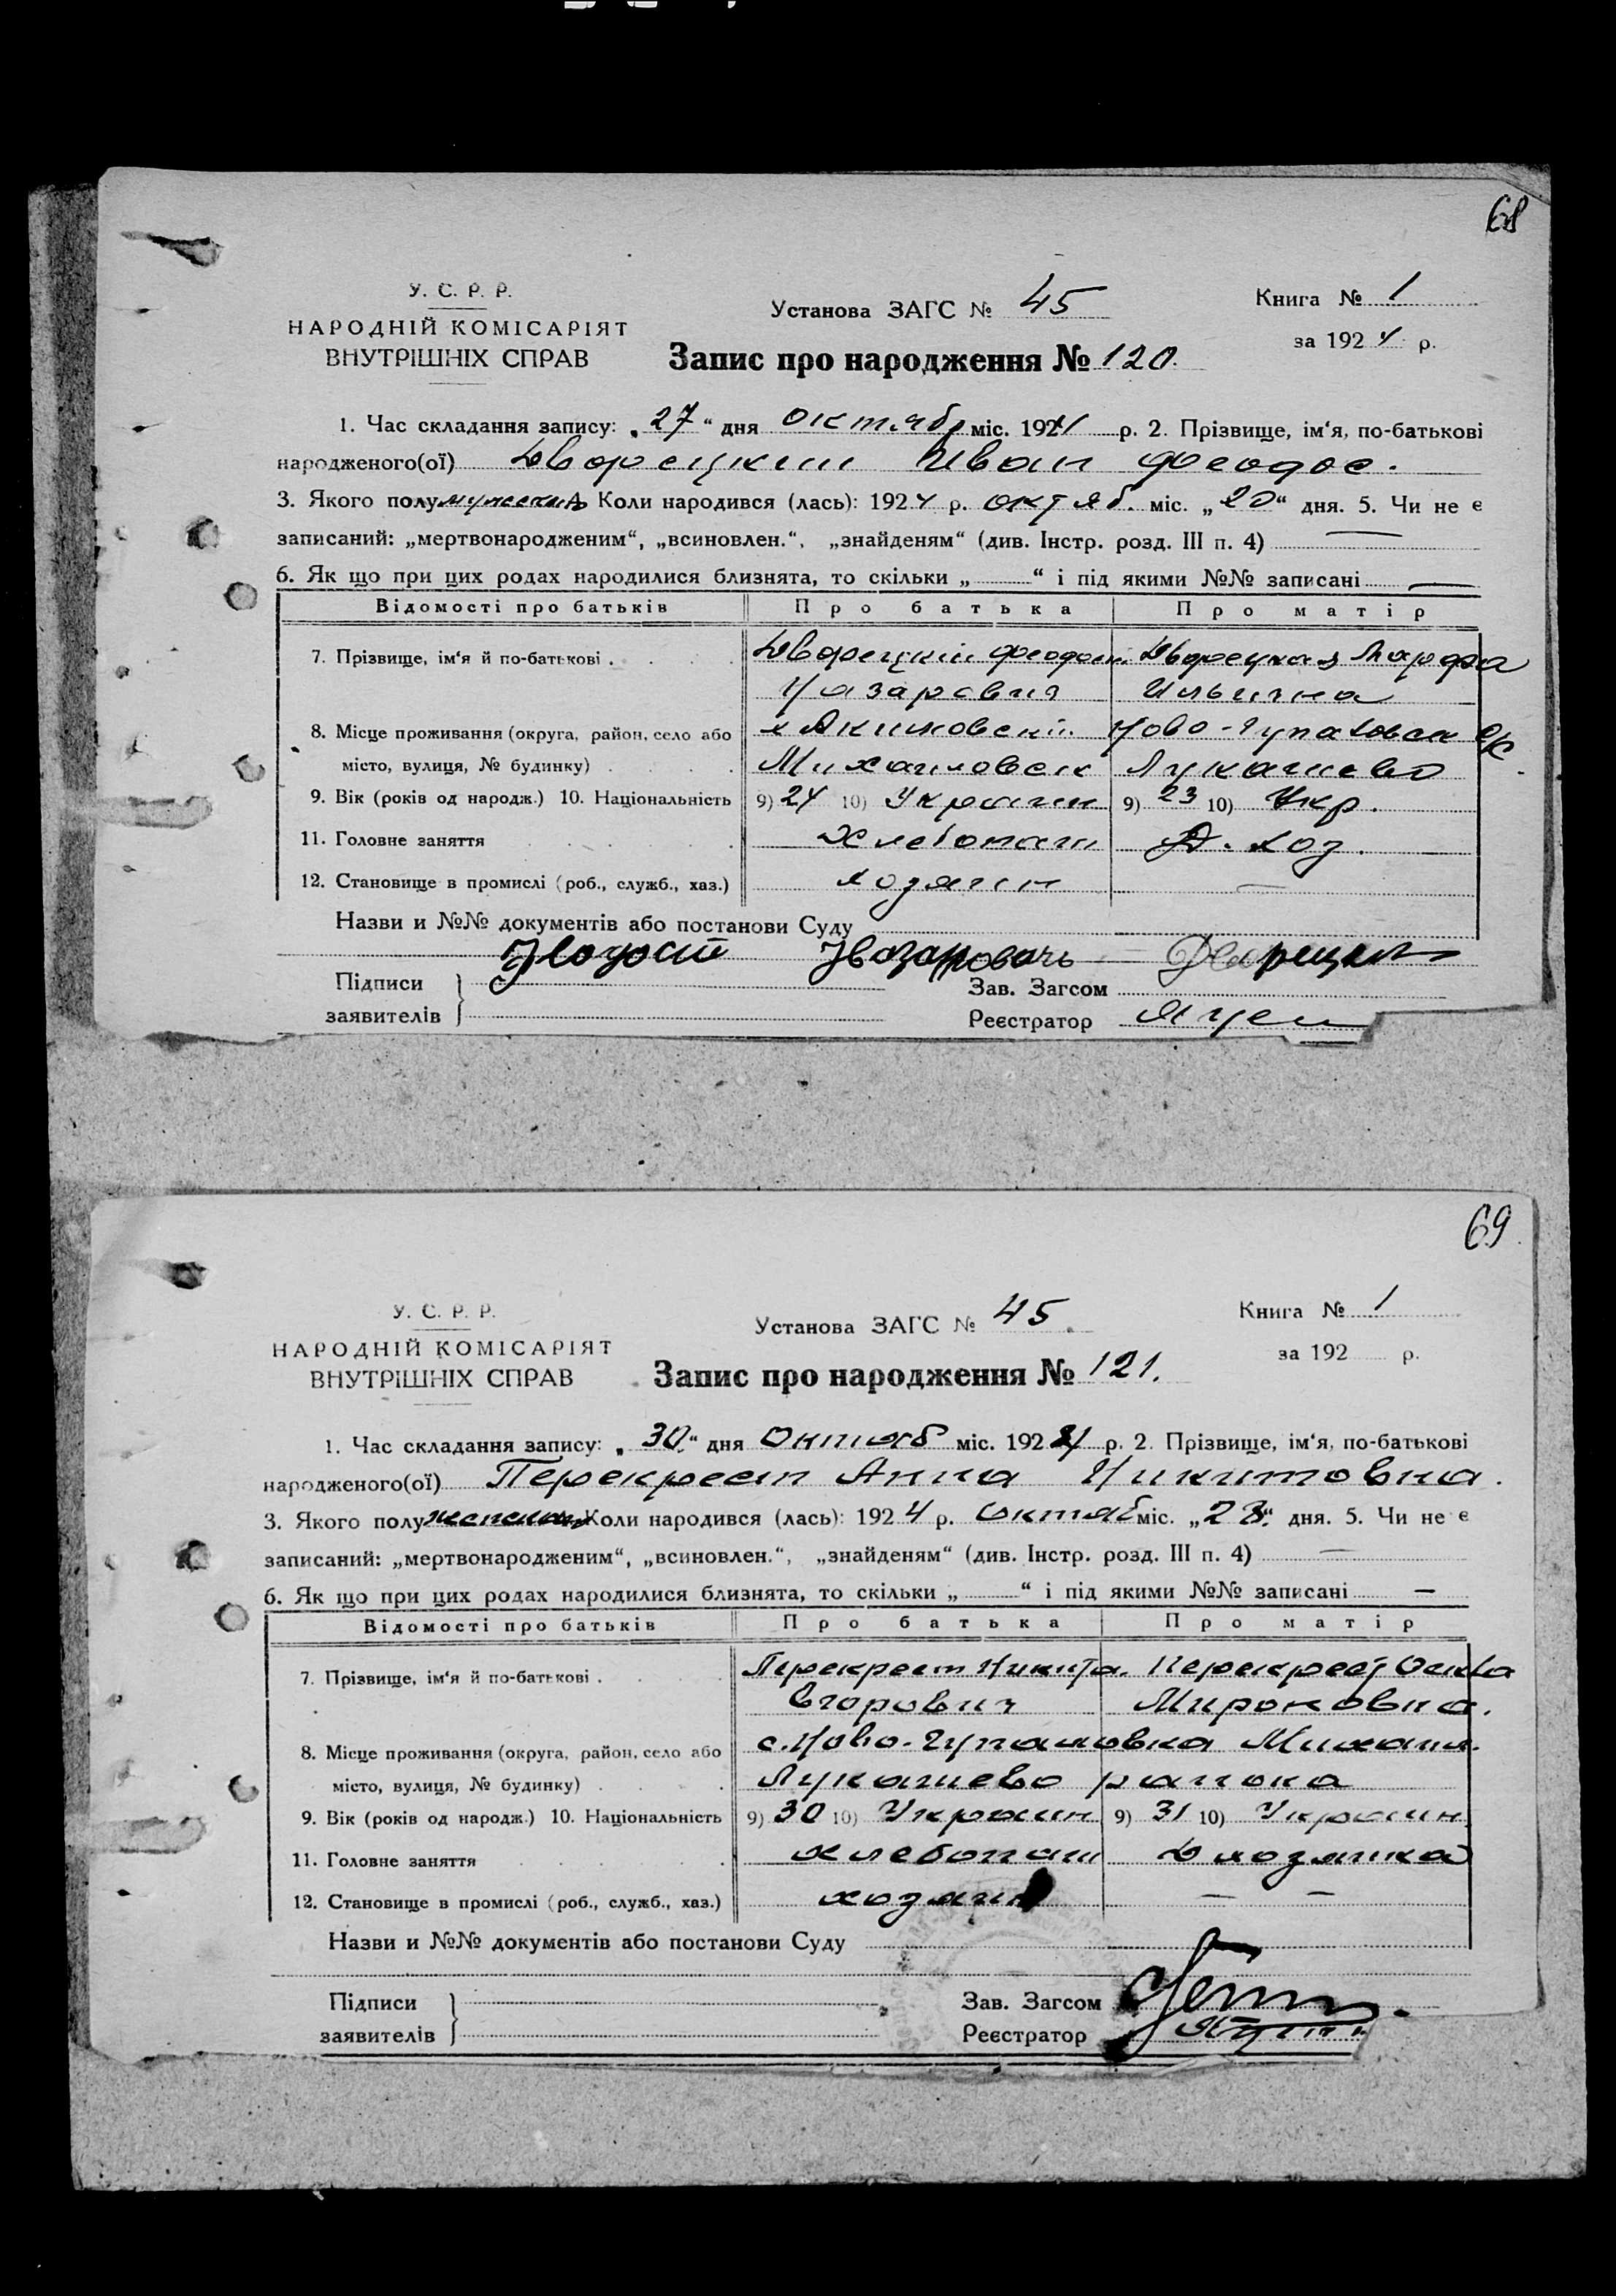 68
У. С. Р. Р.
НАРОДНІЙ КОМІСАРІЯТ
ВНУТРІШНІХ СПРАВ
Установа ЗАГС № 45
Книга № 1
за 1924 р.
Запис про народження № 120.
1. Час складання запису: „27“ дня октябр міс. 1924 р. 2. Прізвище, ім‘я, по-батькові
народженого(ої) Дворецкий Иван Феодос.
3. Якого полу мужчина Коли народився (лась): 1924 р. октяб. міс. „20“ дня. 5. Чи не є
записаний: „мертвонародженим“, „всиновлен.“, „знайденям“ (див. Інстр. розд. III п. 4) —
6. Як що при цих родах народилися близнята, то скільки „ “ і під якими №№ записані —
Відомості про батьків Про батька Про матір
7. Прізвище, ім‘я й по-батькові . Дворецкій Феодос. Дворецкая Марфа
Назарович Ильична
8. Місце проживання (округа, район, село або х Якимовскій Ново-Чупаховск с/с
місто, вулиця, № будинку) Михайловск Лукашево
9. Вік (років од народж.) 10. Національність 9) 24 10) Украин 9) 23 10) Укр.
11. Головне заняття Хлебопаш Д. хоз.
12. Становище в промислі (роб., служб., хаз.) хозяин —
Назви и №№ документів або постанови Суду
Дворецкий
Підписи
заявителів
Зав. Загсом
Реєстратор
69
У. С. Р. Р.
НАРОДНІЙ КОМІСАРІЯТ
ВНУТРІШНІХ СПРАВ
Установа ЗАГС № 45
Книга № 1
за 192 р.
Запис про народження № 121.
1. Час складання запису: „30“ дня Октяб міс. 1924 р. 2. Прізвище, ім‘я, по-батькові
народженого(ої) Перекрест Анна Никитовна.
3. Якого полу Коли народився (лась): 1924 р. Октяб міс. „23“ дня. 5. Чи не є
записаний: „мертвонародженим“, „всиновлен.“, „знайденям“ (див. Інстр. розд. III п. 4) —
6. Як що при цих родах народилися близнята, то скільки „ “ і під якими №№ записані —
Відомості про батьків Про батька Про матір
7. Прізвище, ім‘я й по-батькові . Перекрест Никита. Перекрест
Егорович Мироновна.
8. Місце проживання (округа, район, село або с. Ново-Чупаховка Михайл.
місто, вулиця, № будинку) Лукашево района
9. Вік (років од народж.) 10. Національність 9) 30 10) Украин 9) 31 10) Украин
11. Головне заняття хлебопаш Д хозяйка
12. Становище в промислі (роб., служб., хаз.) хозяин — —
Назви и №№ документів або постанови Суду
Підписи
заявителів
Зав. Загсом
Реєстратор